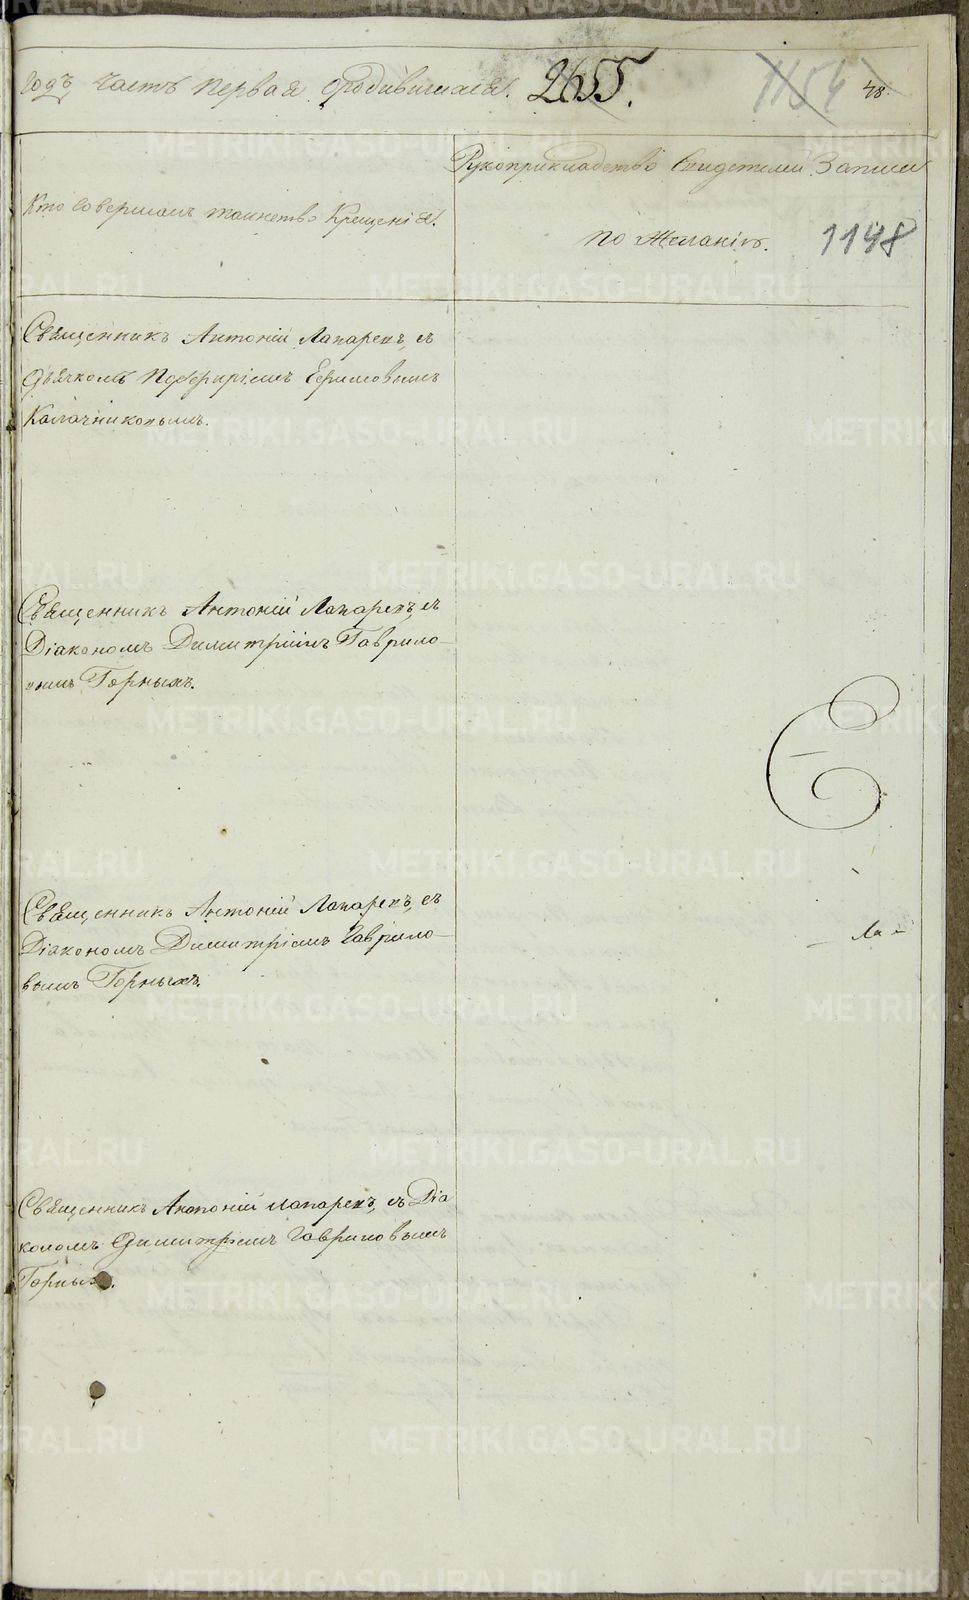 годъ часть первая о родившихся. 2655. 1154 48.
Рукоприкладство Свидетелей Записи
Кто совершалъ таинство Крещенія.
по Желанію. 1148
Священникъ Антоній Лапаревъ, съ
Дьячкомъ Порфиріемъ Ефимовымъ
Калачниковымъ.
Священникъ Антоній Лапаревъ, съ
Діакономъ Димитріимъ Гаврило-
вимъ Горныхъ.
Священникъ Антоній Лапаревъ, съ
Діакономъ Димитріемъ Гаврило-
вымъ Горныхъ.
Ла-
Священникъ Антоній Лапаревъ, съ Діа
кономъ Димитріемъ Гавриловымъ
Горныхъ.
METRIKI.GASO-URAL.RU